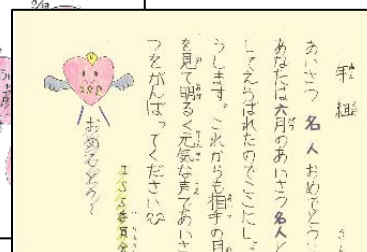 あいさつ名人おめでとう
あなたは六月のあいさつ名人と
してえらばれたのでここにしょ
うします。これからも相手の目
を見て明るく元気な声であいさ
つをがんばってください
おめでとう〜